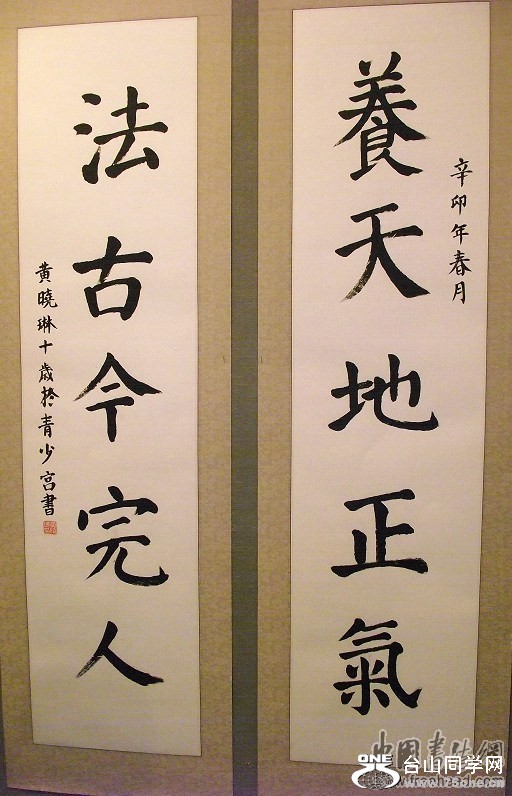 辛卯年春月
養天地正氣
法古今完人
黃曉琳十歲於青少宮書
中国书法网
ONE
台山同学网
www.275one.com